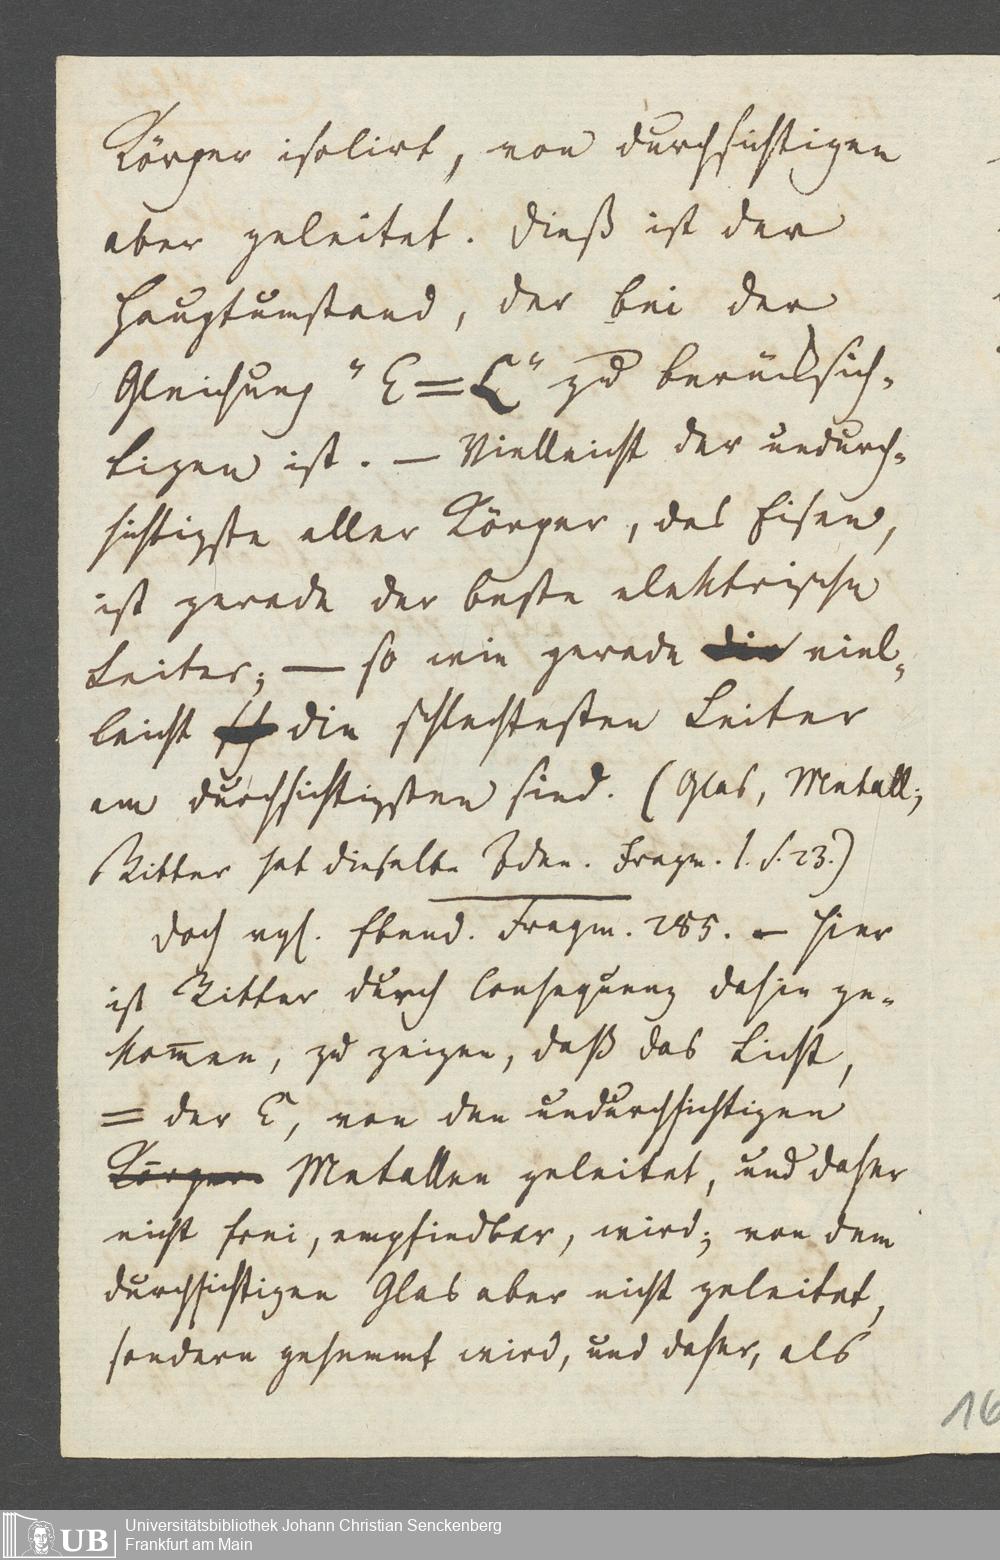 Körper isolirt, von durchsichtigen
aber geleitet. Dieß ist der
Hauptumstand, der bei der
Gleichung "E=L" zu berücksich-
tigen ist. — Vielleicht der undurch-
sichtigste aller Körper, das Eisen,
ist gerade der beste elektrische
Leiter; — so wie gerade die viel-
leicht die schlechtesten Leiter
am durchsichtigsten sind. (Glas, Metall;
Ritter hat dieselbe Idee. Fragm. 1. S. 23.)
Doch vgl. Ebend. Fragm. 285. — Hier
ist Ritter durch Consequenz dahin ge-
kom̅en, zu zeigen, daß das Licht,
= der E, von den undurchsichtigen
Körpern Metallen geleitet, und daher
nicht frei, empfindbar, wird; von dem
durchsichtigen Glas aber nicht geleitet,
sondern gehemmt wird, und daher, als
16
UB
Universitätsbibliothek Johann Christian Senckenberg
Frankfurt am Main